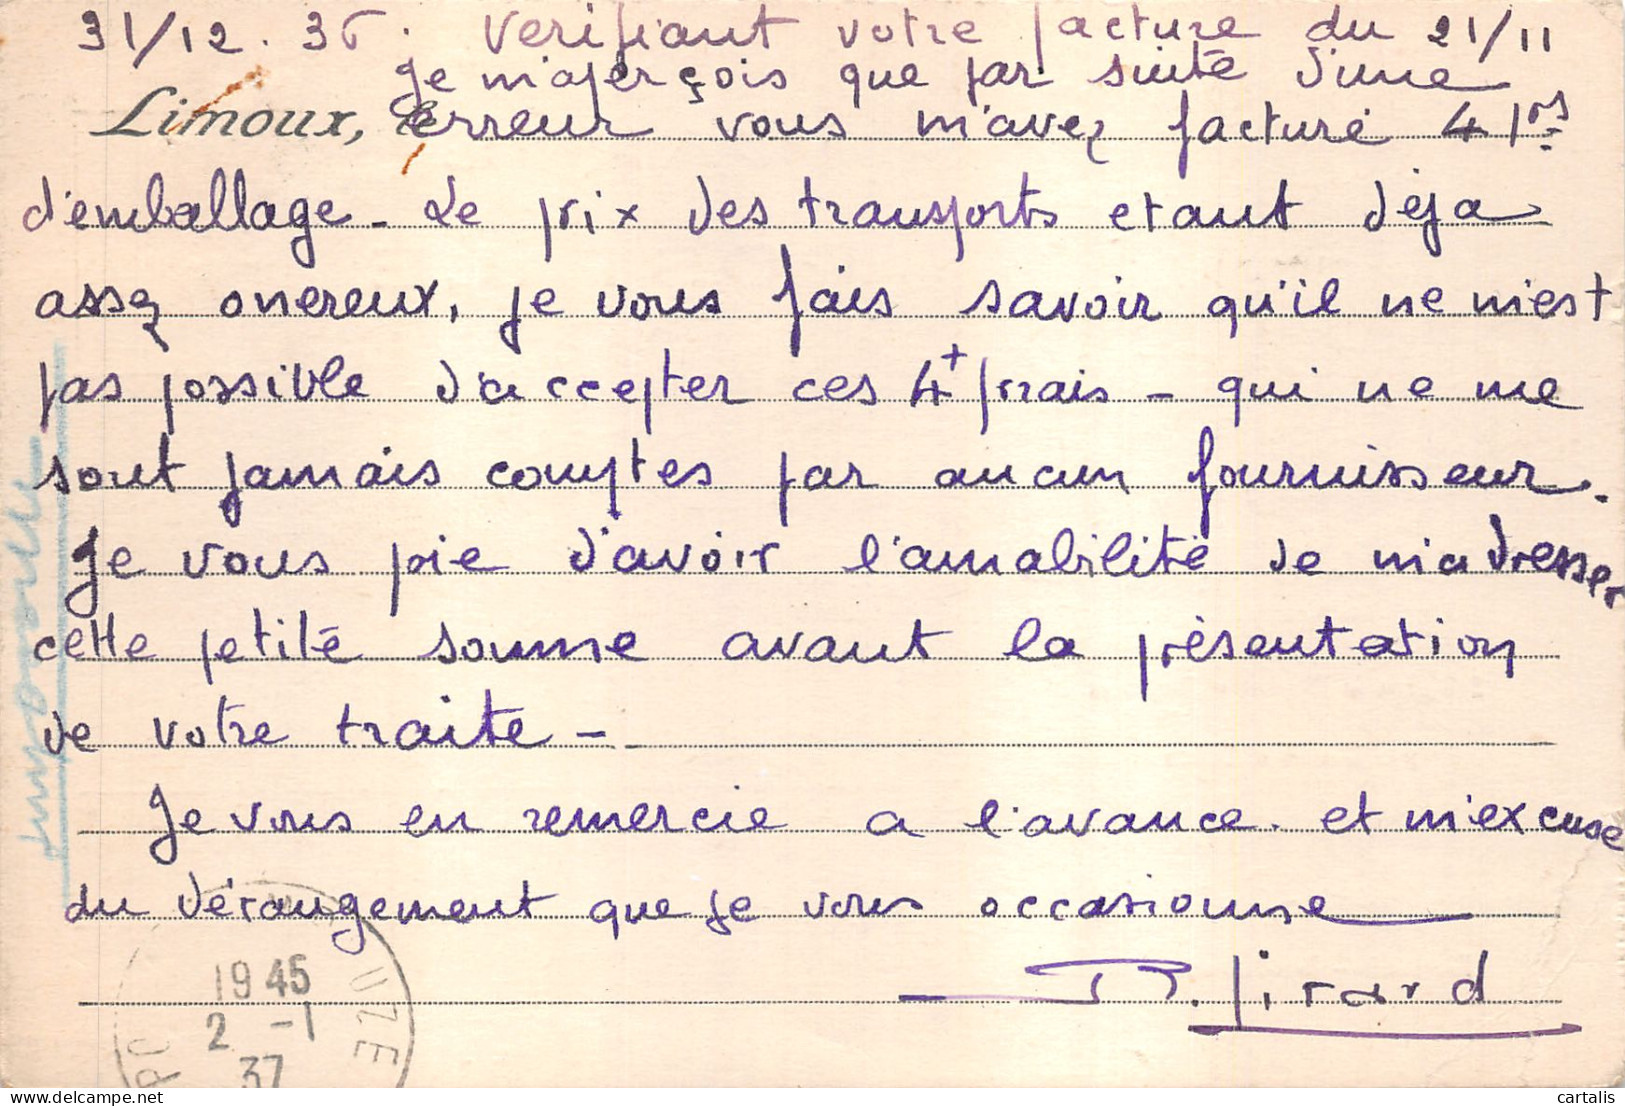 31/12.36. Verifiant votre facture du 21/11
je m'aperçois que par suite d'une
Limoux, le erreur vous m'avez facturé 4 frs
d'emballage - Le prix des transports etant déja
assez onereux, je vous fais savoir qu'il ne m'est
pas possible d'accepter ces 4f frais - qui ne me
sont jamais comptes par aucun fournisseur.
Je vous prie d'avoir l'amabilité de m'adresser
cette petite somme avant la présentation
de votre traite -
Je vous en remercie a l'avance. et m'excuse
du dérangement que je vous occasionne
Girard
19 45
2 -1
37